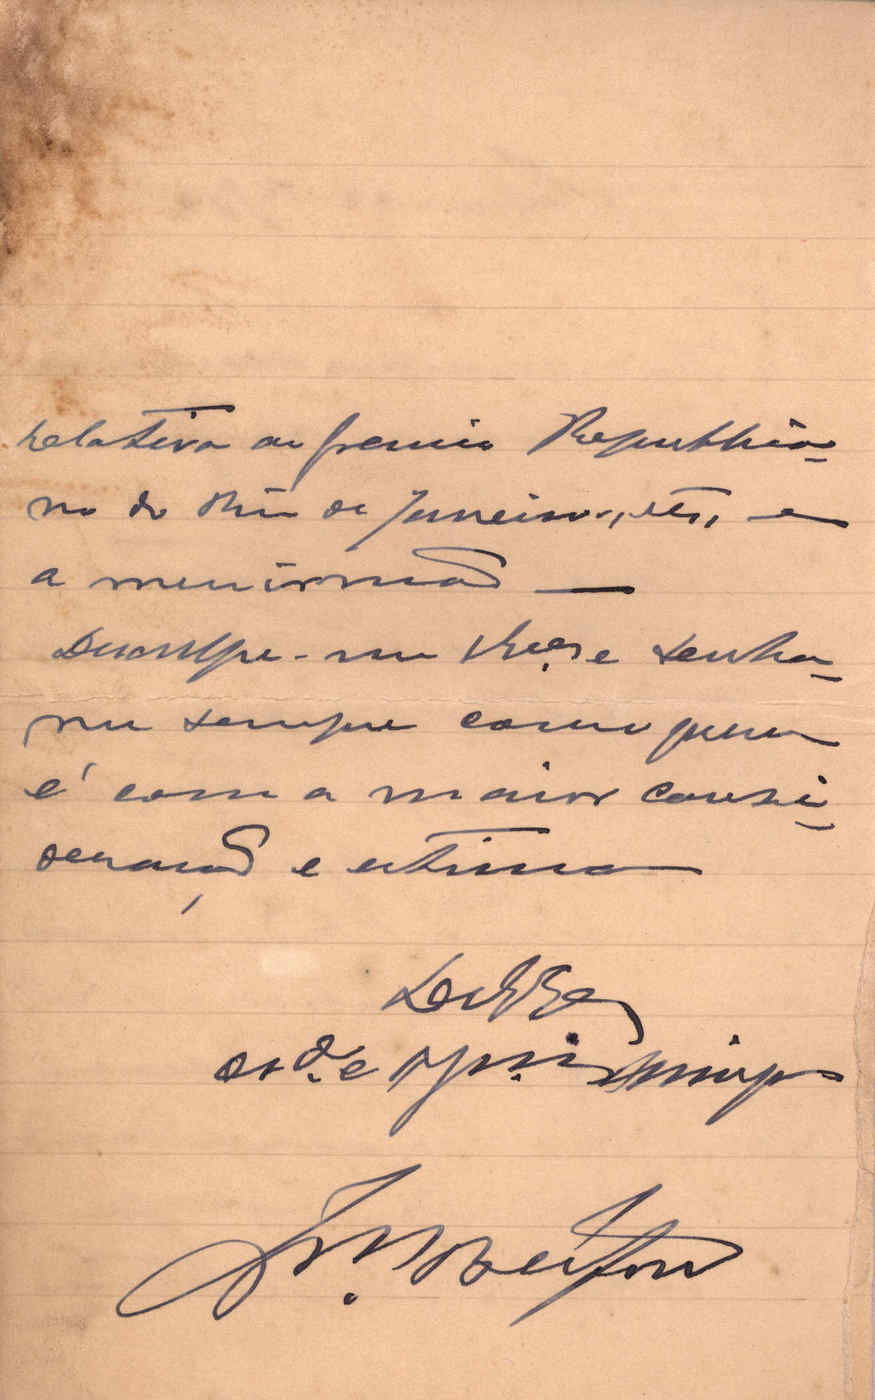 relativa ao Gremio Republica-
no do Rio de Janeiro, etc, e
a meu irmão —
Desculpe-me V. Exª e tenha-
me sempre como quem
é com a maior consi-
deração e estima
De V. Exª
am.º